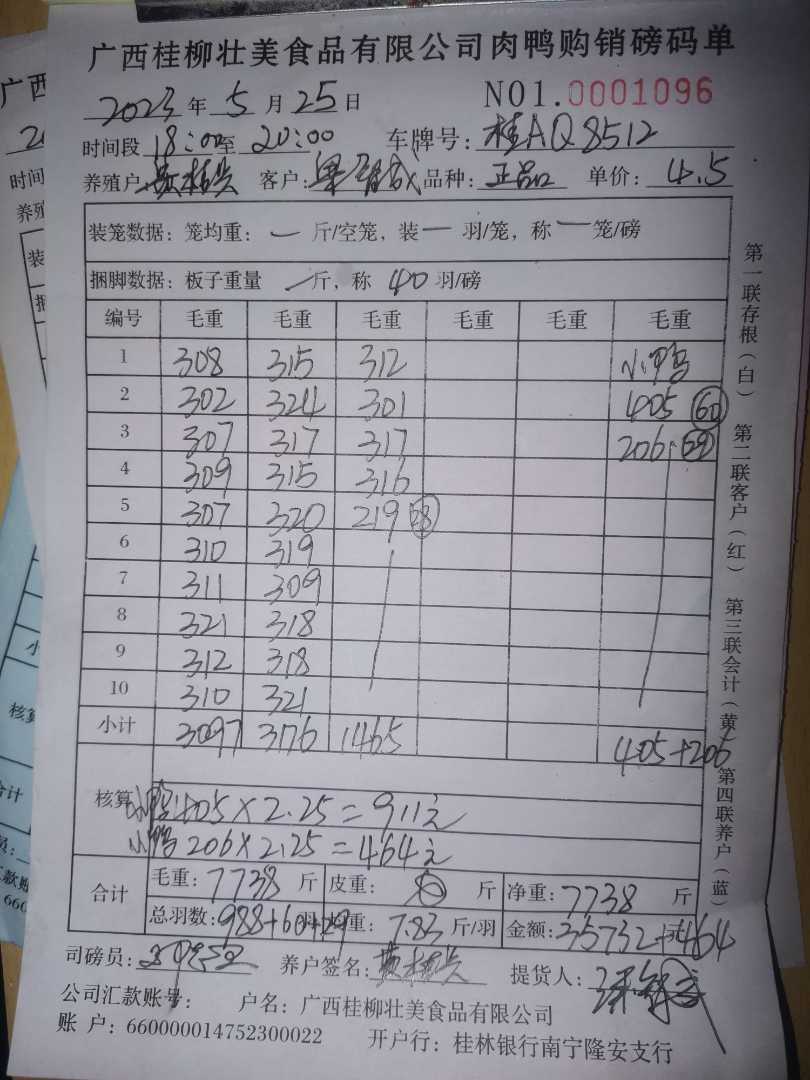 广西桂柳壮美食品有限公司肉鸭购销磅码单
2023 年 5 月 25 日 NO1.0001096
时间段 18:00 至 20:00 车牌号: 桂AQ8512
养殖户: 客户: 品种: 正品 单价: 4.5
装笼数据: 笼均重: 一 斤/空笼, 装 一 羽/笼, 称 一 笼/磅
捆脚数据: 板子重量 一 斤, 称 40 羽/磅
编号 毛重 毛重 毛重 毛重 毛重 毛重
1 308 315 312 小鸭
2 302 324 301 405 (60)
3 307 317 317 206
4 309 315 316
5 307 320 219 (28)
6 310 319
7 311 309
8 321 318
9 312 318
10 310 321
小计 3097 3176 1465 405+206
核算 小鸭 405×2.25=911元
小鸭 206×2.25=464元
合计 毛重: 7738 斤 皮重: 斤 净重: 7738 斤
总羽数: 988+60+29 均重: 7.83 斤/羽 金额: 35732+464 元
司磅员: 养户签名: 提货人:
公司汇款账号: 户名: 广西桂柳壮美食品有限公司
账 户: 660000014752300022 开户行: 桂林银行南宁隆安支行
第一联存根(白) 第二联客户(红) 第三联会计(黄) 第四联养户(蓝)